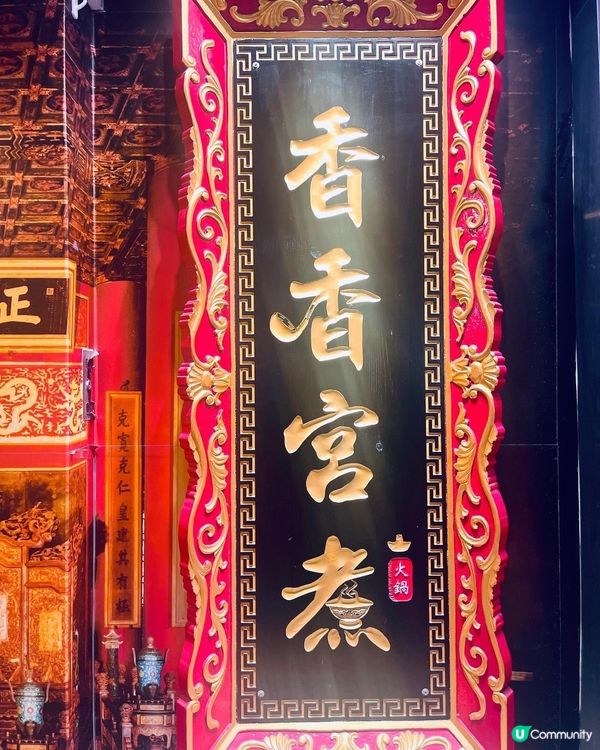 香香宮煮
火鍋
正
克寬克仁皇建其有極
U Community